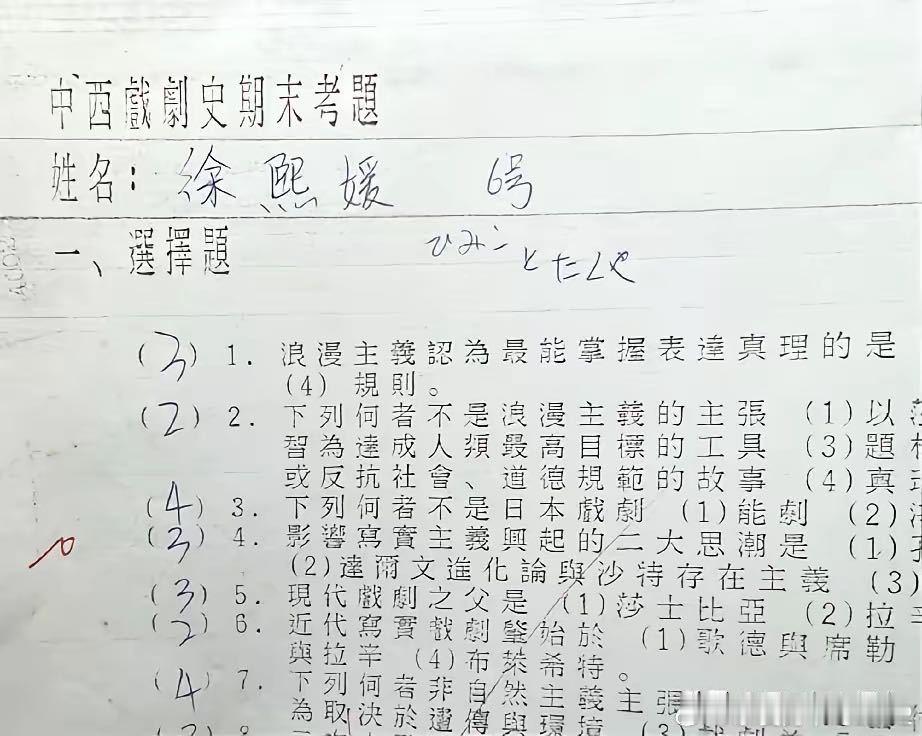 中西戲劇史期末考題
姓名：徐熙媛 6号
ひみこ
一、選擇題 とたくや
(3) 1. 浪漫主義認為最能掌握表達真理的是
(4) 規則。
(2) 2. 下列何者不是浪漫主義的主張 (1)以
智為達成人類最高目標的工具 (3)題材
或反抗社會、道德規範的故事 (4)真
(4) 3. 下列何者不是日本戲劇 (1)能劇 (2)
(3) 4. 影響寫實主義興起的二大思潮是 (1)
(2)達爾文進化論與沙特存在主義 (3)
(3) 5. 現代戲劇之父是 (1)莎士比亞 (2)拉辛
(2) 6. 近代寫實戲劇肇始於 (1)歌德與席勒
與拉辛 (4)布萊希特。
(4) 7. 下列何者非自然主義主張
為取決於遺傳與環境